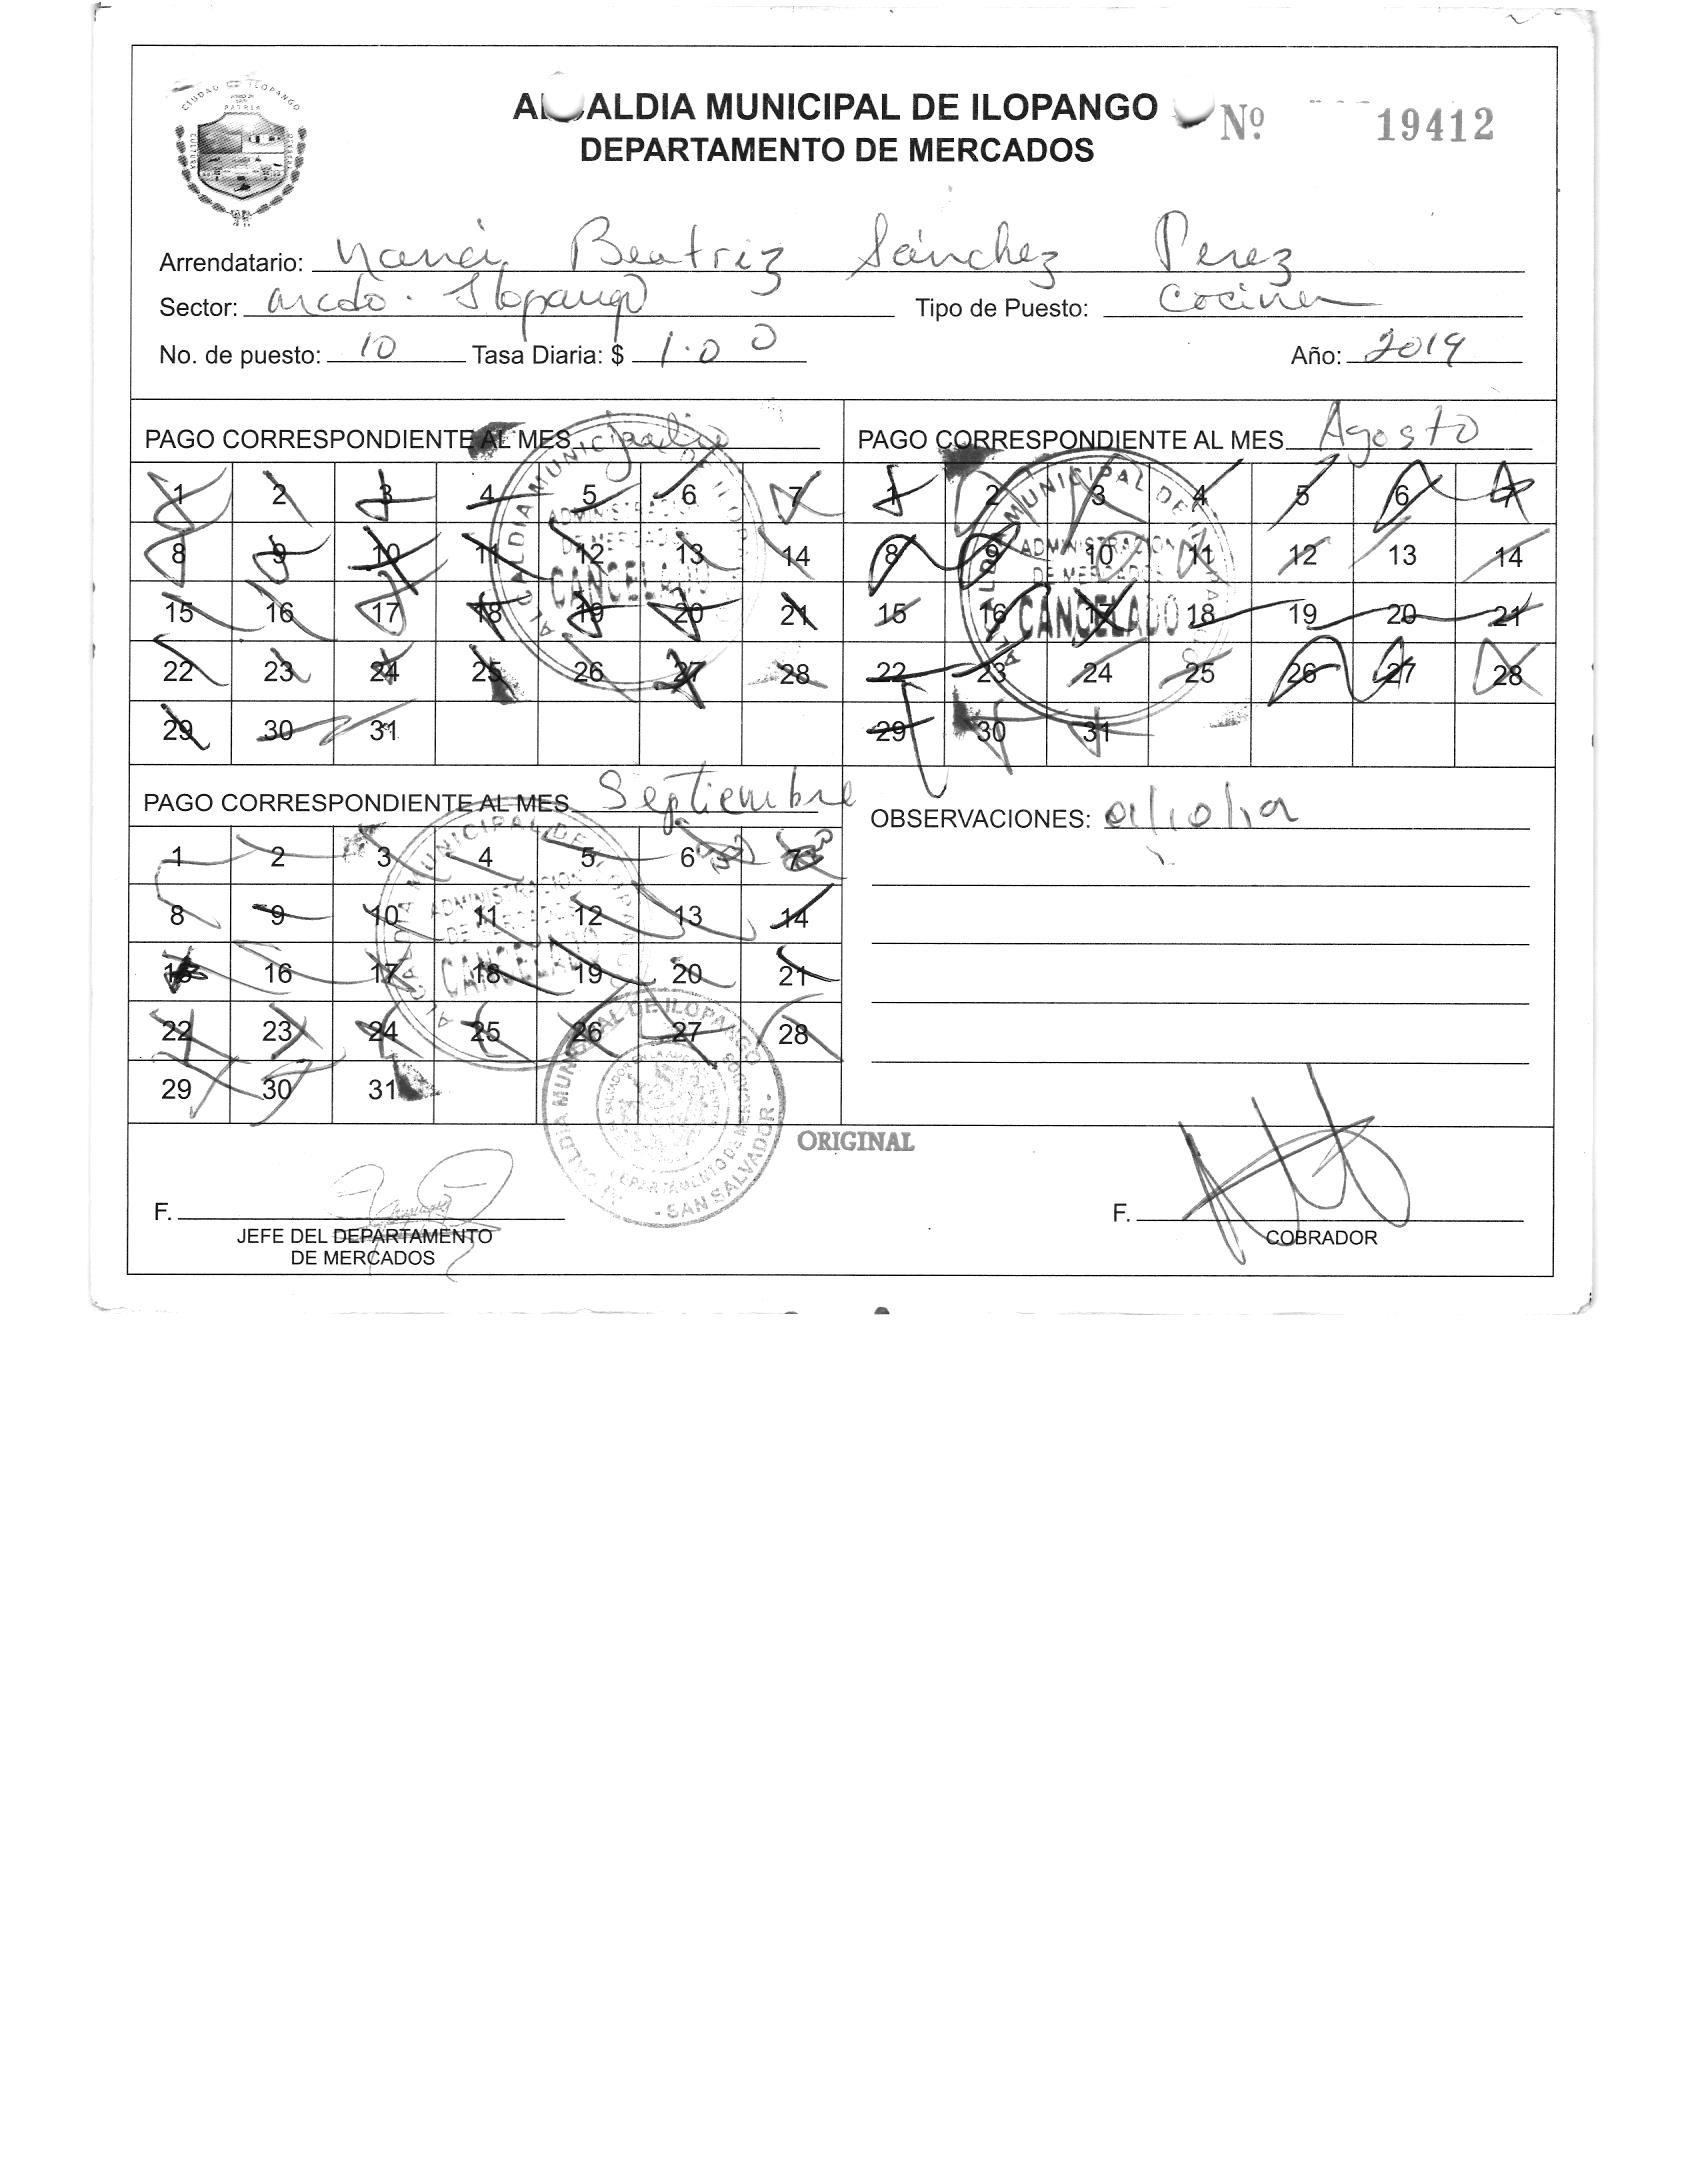 ALCALDIA MUNICIPAL DE ILOPANGO
DEPARTAMENTO DE MERCADOS
Nº 19412
CIUDAD DE ILOPANGO
PATRIA
Arrendatario: Beatriz Sánchez Perez
Sector: Ilopango Tipo de Puesto: Cocina
No. de puesto: 10 Tasa Diaria: $ 1.00 Año: 2019
PAGO CORRESPONDIENTE AL MES
1 2 3 4 5 6 7
8 9 10 11 12 13 14
15 16 17 18 19 20 21
22 23 24 25 26 27 28
29 30 31
ALCALDIA MUNICIPAL DE ILOPANGO
ADMINISTRACION
DE MERCADOS
CANCELADO
PAGO CORRESPONDIENTE AL MES Agosto
1 2 3 4 5 6 7
8 9 10 11 12 13 14
15 16 17 18 19 20 21
22 23 24 25 26 27 28
29 30 31
MUNICIPAL DE
ADMINISTRACION
DE MERCADOS
CANCELADO
PAGO CORRESPONDIENTE AL MES Septiembre
1 2 3 4 5 6 7
8 9 10 11 12 13 14
15 16 17 18 19 20 21
22 23 24 25 26 27 28
29 30 31
ALCALDIA MUNICIPAL DE ILOPANGO
ADMINISTRACION
DE MERCADOS
CANCELADO
OBSERVACIONES: 01/10/19
ALCALDIA MUNICIPAL DE ILOPANGO
DEPARTAMENTO DE MERCADOS
- SAN SALVADOR -
ORIGINAL
F.
JEFE DEL DEPARTAMENTO
DE MERCADOS
F.
COBRADOR